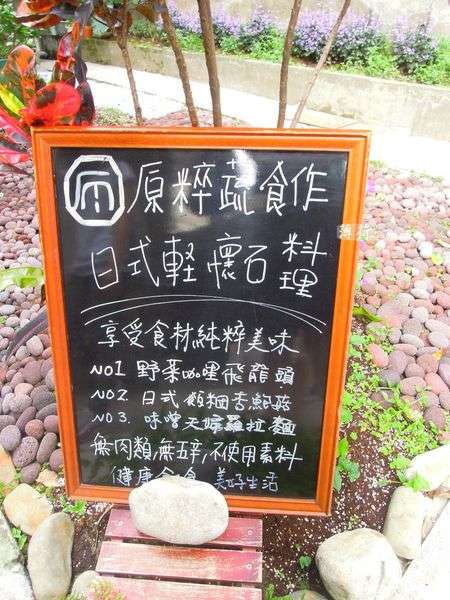 原粹蔬食作
日式軽懷石料理
享受食材純粹美味
NO1 野菜咖哩飛龍頭
NO2. 日式 香鮑菇
NO3. 味噌天婦羅拉麵
無肉類,無五辛,不使用素料
健康 食 美好生活